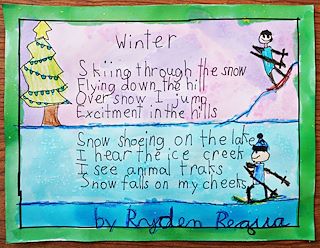 Winter
Skiing through the snow
Flying down the hill
Over snow I jump
Excitment in the hills
Snow shoeing on the lake
I hear the ice creek
I see animal traks
Snow falls on my cheeks
by Ryden Regua